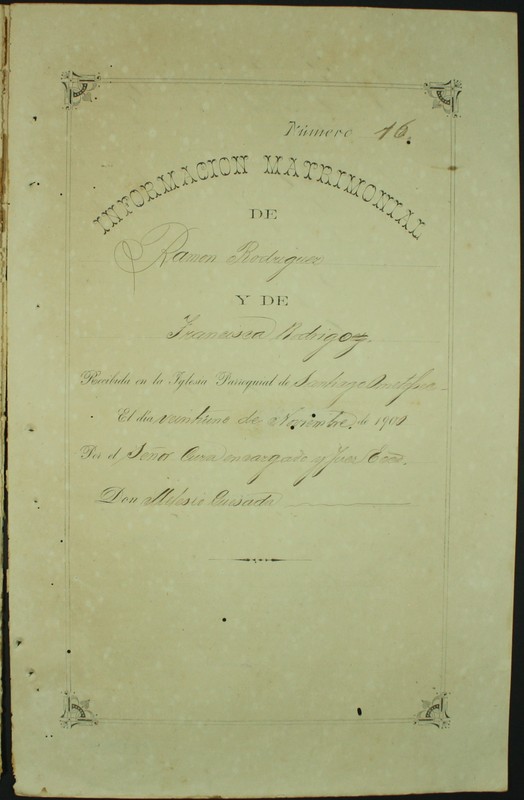 Número 16.
INFORMACION MATRIMONIAL
DE
Ramon Rodriguez
Y DE
Francisca
Recibida en la Iglesia Parroquial de Santiago
El dia veintiuno de Noviembre de 190
Por el Señor Cura encargado y Juez Ecco.
Don Quesada